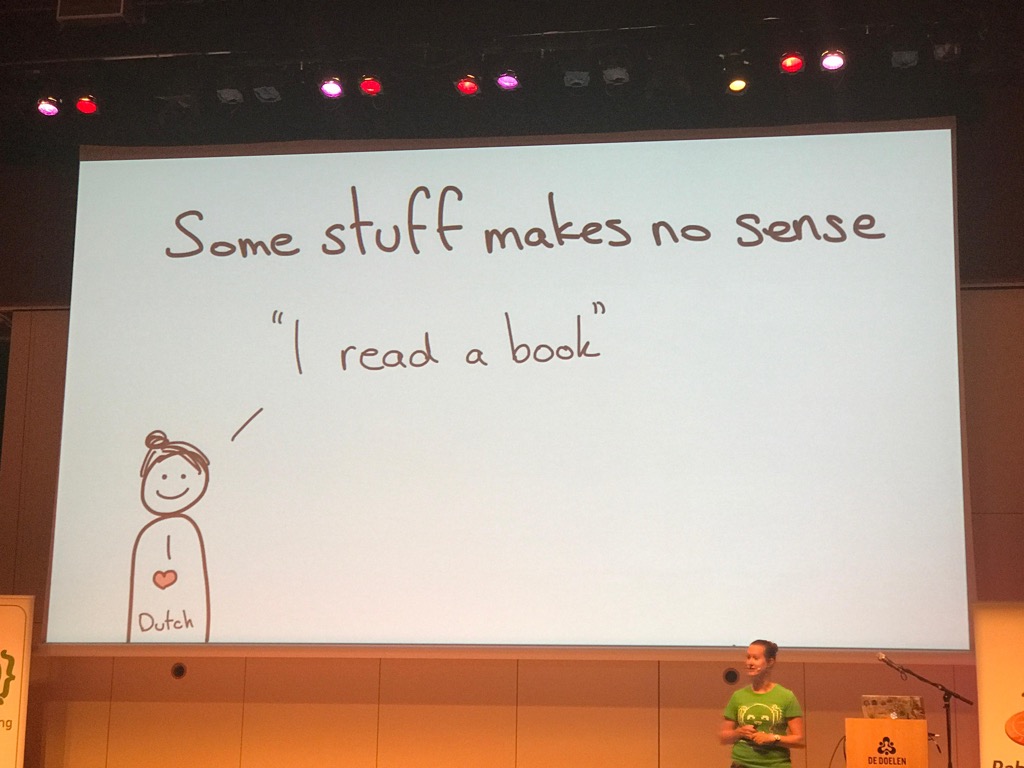 Some stuff makes no sense
"I read a book"
I
Dutch
DE DOELEN